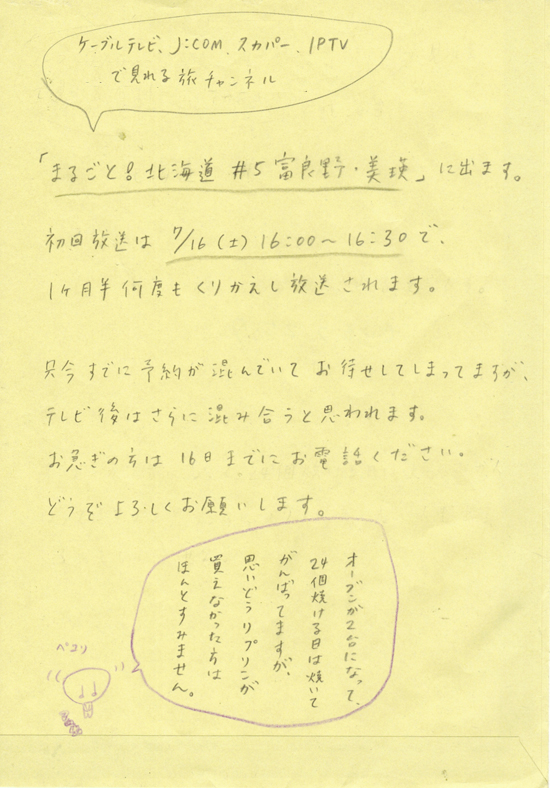 ケーブルテレビ、J:COM、スカパー、IPTV
で見れる旅チャンネル
「まるごと！北海道 #5 富良野・美瑛」に出ます。
初回放送は 7/16(土) 16:00～16:30で、
1ヶ月半何度もくりかえし放送されます。
只今すでに予約が混んでいてお待せしてしまってますが、
テレビ後はさらに混み合うと思われます。
お急ぎの方は16日までにお電話ください。
どうぞよろしくお願いします。
オーブンが2台になって、
24個焼ける日は焼いて
がんばってますが、
思いどうりプリンが
買えなかった方は
ほんとすみません。
ペコリ